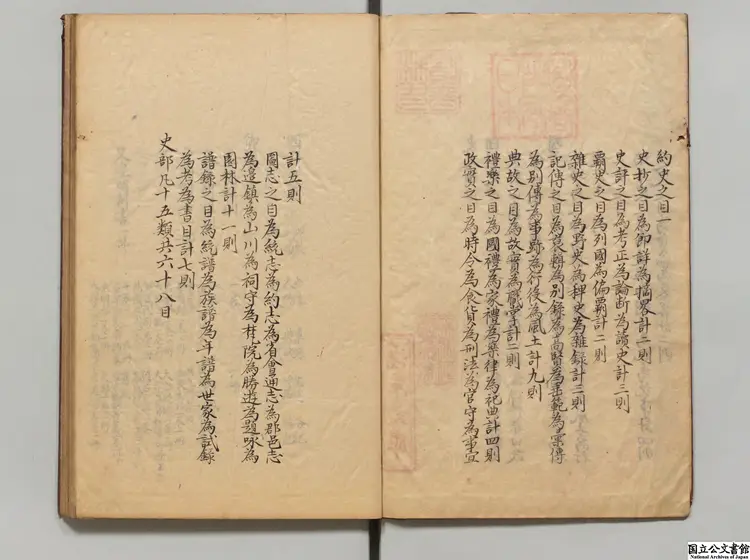 約史之目一
史抄之目為節詳為摘畧計二則
史評之目為考正為論斷為讀史計三則
霸史之目為列國為偏霸計二則
雜史之目為野史為稗史為雜錄計三則
記傳之目為裒輯為別錄為高賢為垂範為彙傳
為別傳為事跡為行役為風土計九則
典故之目為故實為職掌計二則
禮樂之目為國禮為家禮為樂律為祀典計四則
政實之目為時令為食貨為刑法為官守為事宜
計五則
圖志之目為統志為約志為省會通志為郡邑志
為邊鎮為山川為祠宇為梵院為勝遊為題咏為
園林計十一則
譜錄之目為統譜為族譜為年譜為世家為試錄
為考為書目計七則
史部凡十五類共六十八目
国立公文書館
National Archives of Japan